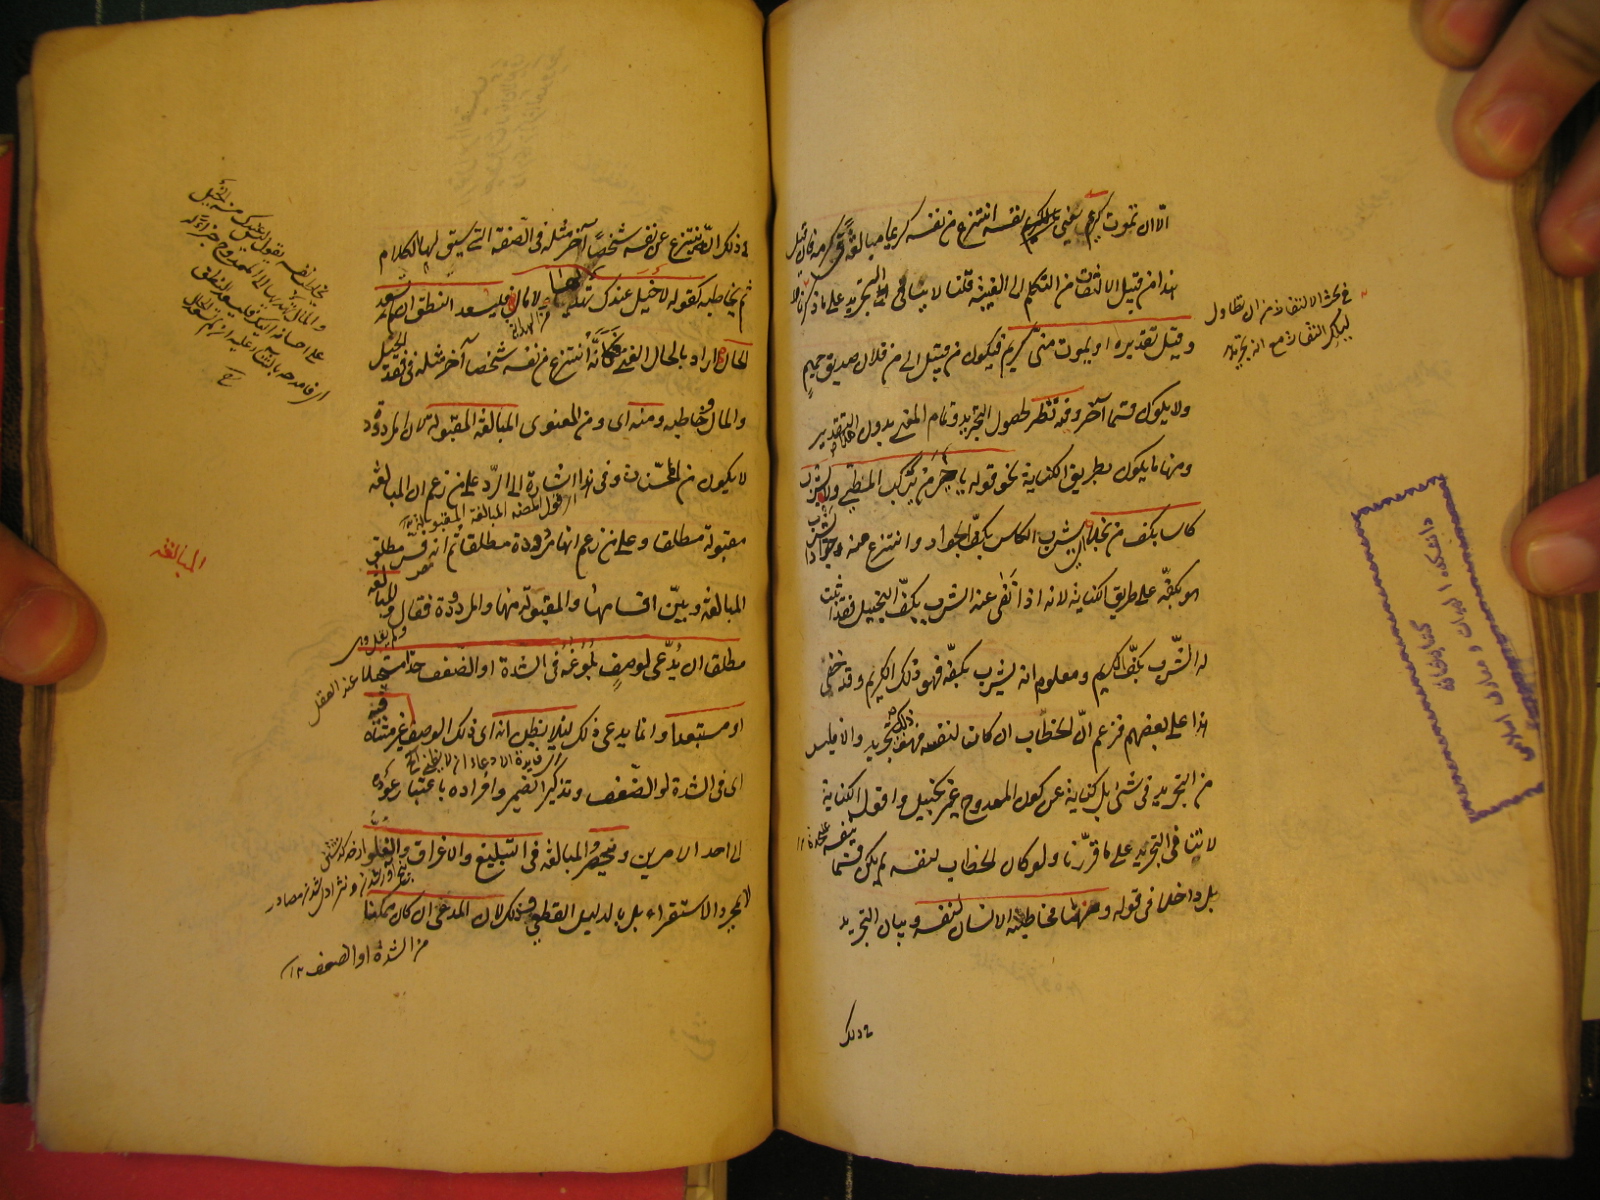 الا ان يموت كريم يعني بالكريم نفسه انتزع من نفسه كريما مبالغة في كرمه فان قيل
هذا من قبيل الالتفات من التكلم الى الغيبة قلنا لا ينافي التجريد على ما ذكرنا
وقيل تقديره او يموت مني كريم فيكون من قبيل لي من فلان صديق حميم
ولا يكون قسما آخر وفيه نظر لحصول التجريد وتمام المعنى بدون هذا التقدير
ومنها ما يكون بطريق الكناية نحو قوله يا خير من يركب المطي ولا يشرب
كاسا بكف من بخلا اي يشرب الكاس بكف الجواد وانتزع منه جوادا يشرب
هو بكفه على طريق الكناية لانه اذا نفى عنه الشرب بكف البخيل فقد اثبت
له الشرب بكف الكريم ومعلوم انه يشرب بكفه فهو ذلك الكريم وقد خفي
هذا على بعضهم فزعم ان الخطاب ان كان لنفسه فهو تجريد والا فليس
من التجريد في شئ بل كناية عن كون الممدوح غير بخيل واقول الكناية
لا تنافي التجريد على ما قررنا ولو كان الخطاب لنفسه لم يكن قسما بنفسه
بل داخلا في قوله ومنها مخاطبة الانسان لنفسه وبيان التجريد
في ذلك
دانشكده الهيات و معارف اسلامى
كتابخانه
في ذلك انه ينتزع من نفسه شخصا آخر مثله في الصفة التي سيق لها الكلام
ثم يخاطبه كقوله لا خيل عندك تهديها ولا مال فليسعد النطق ان لم تسعد
الحال اراد بالحال الغنى فكانه انتزع من نفسه شخصا آخر مثله في فقد الخيل
والمال وخاطبه ومنه اي ومن المعنوى المبالغة المقبولة لان المردودة
لا يكون من المحسنات وفي هذا اشارة الى الرد على من زعم ان المبالغة
مقبولة مطلقا وعلى من زعم انها مردودة مطلقا ثم انه فسر مطلق
المبالغة وبين اقسامها والمقبولة منها والمردودة فقال والمبالغة
مطلقا ان يدعى لوصف بلوغه في الشدة او الضعف حدا مستحيلا
او مستبعدا وانما يدعى ذلك لئلا يظن انه اى ذلك الوصف غير متناه فيه
اى في الشدة او الضعف وتذكير الضمير وافراده باعتبار عوده
الى احد الامرين وتنحصر المبالغة في التبليغ والاغراق والغلو
لا بمجرد الاستقراء بل بالدليل القطعي وذلك لان المدعى ان كان ممكنا
من الشدة او الضعف ١٢
المبالغة